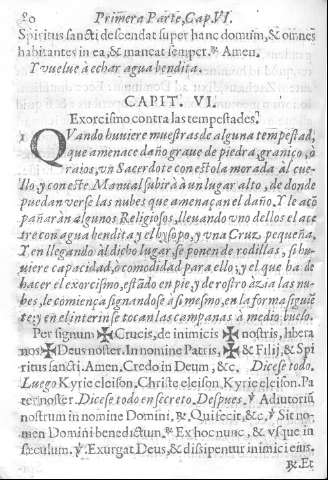 20 Primera Parte, Cap. VI.
Spiritus sancti descendat super hanc domum, & omnes
habitantes in ea, & maneat semper. ℟. Amen.
Y vuelue à echar agua bendita.
CAPIT. VI.
Exorcismo contra las tempestades.
1 QVando huuiere muestras de alguna tempestad,
que amenace daño graue de piedra, graniço, ò
raios, vn Sacerdote con estola morada àl cue-
llo, y con este Manual subirà à un lugar alto, de donde
puedan verse las nubes que amenaçan el daño. Y le acõ
pañaràn algunos Religiosos, lleuando vno dellos el ace
tre con agua bendita y el hysopo, y vna Cruz pequeña,
Y en llegando àl dicho lugar, se ponen de rodillas, si hu-
uiere capacidad, ò comodidad para ello, y el que ha de
hacer el exorcismo, estãdo en pie, y de rostro àzia las nu-
bes, le comiença signandose à si mesmo, en la forma siguiẽ
te; y en el interin se tocan las campanas à medio buelo.
Per signum ✠ Crucis, de inimicis ✠ nostris, libera
nos ✠ Deus noster. In nomine Patris, ✠ & Filij, & Spi
ritus sancti. Amen. Credo in Deum, &c. Dicese todo.
Luego Kyrie eleison. Christe eleison. Kyrie eleison. Pa
ter noster. Dicese todo en secreto. Despues. ℣. Adiutoriũ
nostrum in nomine Domini. ℟. Qui fecit, &c. ℣. Sit no-
men Domini benedictum. ℟. Ex hoc nunc, & vsque in
sæculum. ℣. Exurgat Deus, & dissipentur inimici eius.
℟. Et